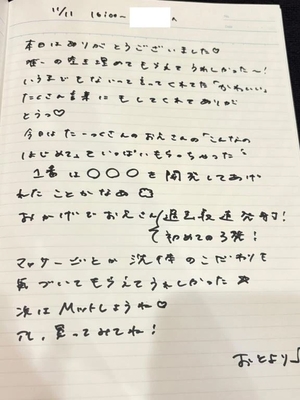 11/11 16:00〜
本日はありがとうございました♡
唯一の空き埋めてもらえてうれしかった〜!
いうまでもないって言ってくれてた「かわいい」
たくさん言葉にもしてくれてありが
とうっ♡
今日はたーっくさんのお兄さんの「こんなの
はじめて」をいっぱいもらっちゃった
1番は〇〇〇を開発してあげ
れたことかなぁ
おかげでお兄さん
初めての3発!
マッサージとか洗体のこだわりも
気づいてもらえてうれしかった☆
次はMットしようね♡
、買ってみてね!
おとより